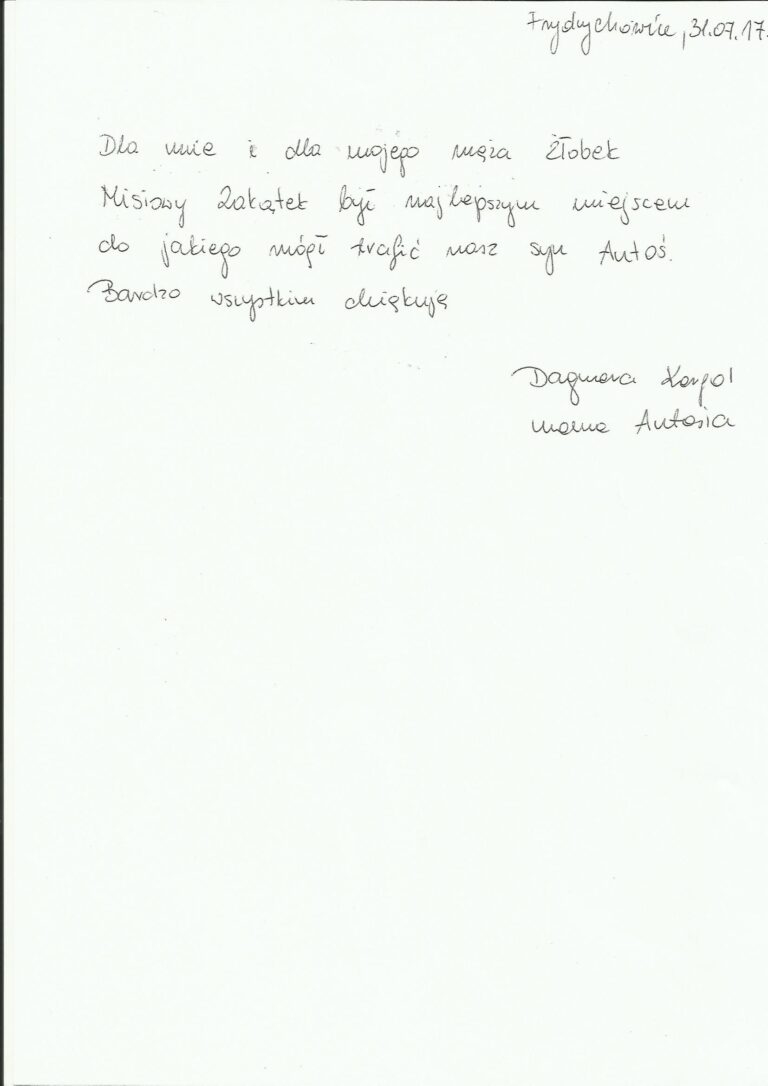 Frydrychowice, 31.07.17.
Dla mnie i dla mojego męża żłobek
Misiowy Zakątek był najlepszym miejscem
do jakiego mógł trafić nasz syn Antoś.
Bardzo wszystkim dziękuję
Dagmara
mama Antosia